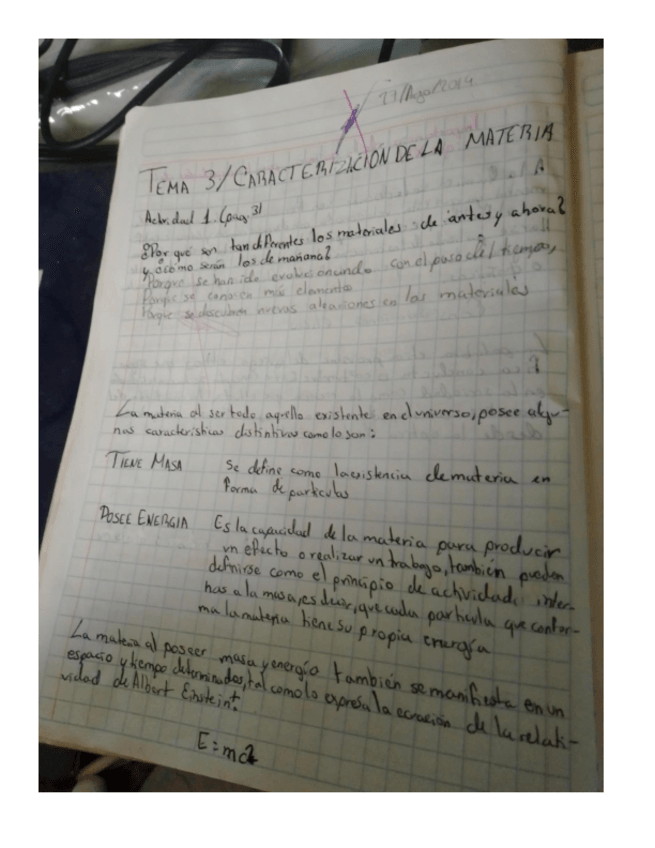 27/Ago/2019
TEMA 3/CARACTERIZACIÓN DE LA MATERIA
Actividad 1. (pag 3)
¿Por qué son tan diferentes los materiales de antes y ahora?
y ¿cómo serán los de mañana?
Porque se han ido evolucionando con el paso del tiempo,
Porque se conocen más elementos
Porque se descubren nuevas aleaciones en los materiales
La materia al ser todo aquello existente en el universo, posee algu-
nas características distintivas como lo son:
TIENE MASA Se define como la existencia de materia en
forma de partículas
POSEE ENERGIA Es la capacidad de la materia para producir
un efecto o realizar un trabajo, también pueden
definirse como el principio de actividad, inter-
has a la masa, es decir, que cada partícula que confor-
ma la materia tiene su propia energía
La materia al poseer masa y energía también se manifiesta en un
espacio y tiempo determinados, tal como lo expresa la ecuación de la relati-
vidad de Albert Einstein:
E=mc2